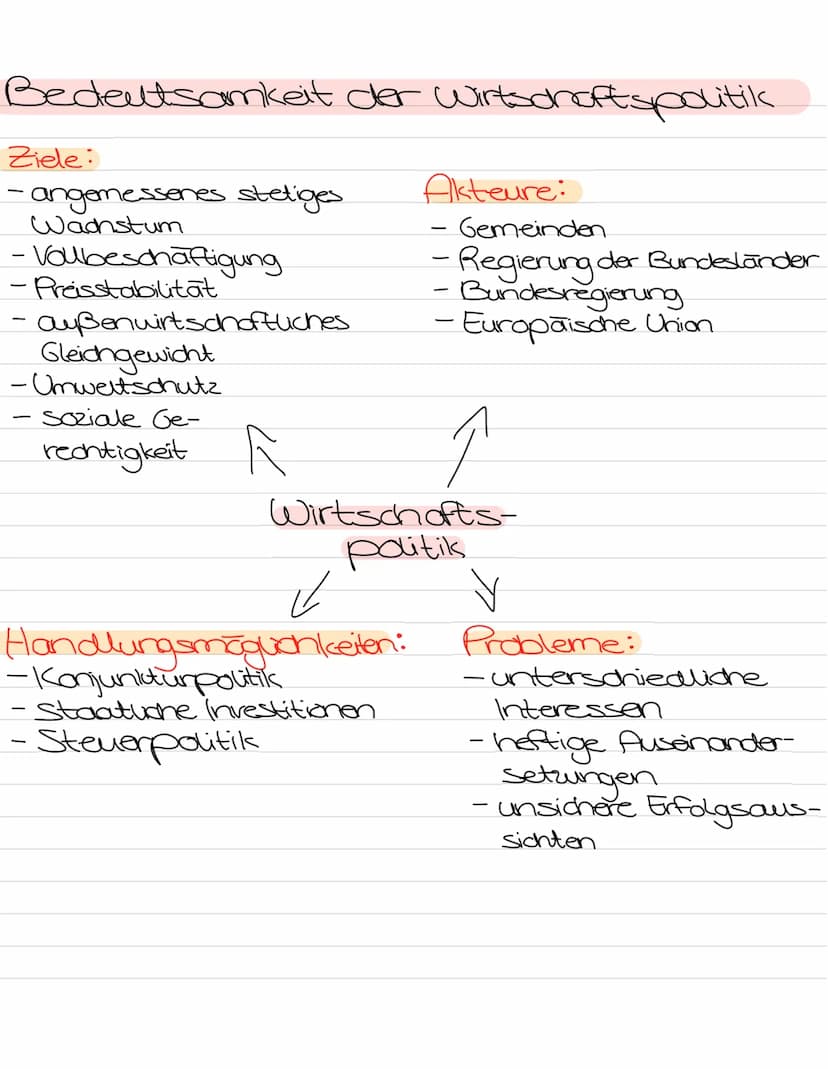 Bedeutsamkeit der Wirtschaftspolitik
Ziele:
- angemessenes stetiges
Wachstum
- Vollbeschäftigung
- Preisstabilität
- außenwirtschaftliches
Gleichgewicht
- Umweltschutz
- soziale Ge-
rechtigkeit
Akteure:
- Gemeinden
- Regierung der Bundesländer
- Bundesregierung
- Europäische Union
Wirtschafts-
politik
Handlungsmöglichkeiten:
- Konjunkturpolitik
- Staatliche Investitionen
- Steuerpolitik
Probleme:
- unterschiedliche
Interessen
- heftige Auseinander-
setzungen
- unsichere Erfolgsaus-
sichten